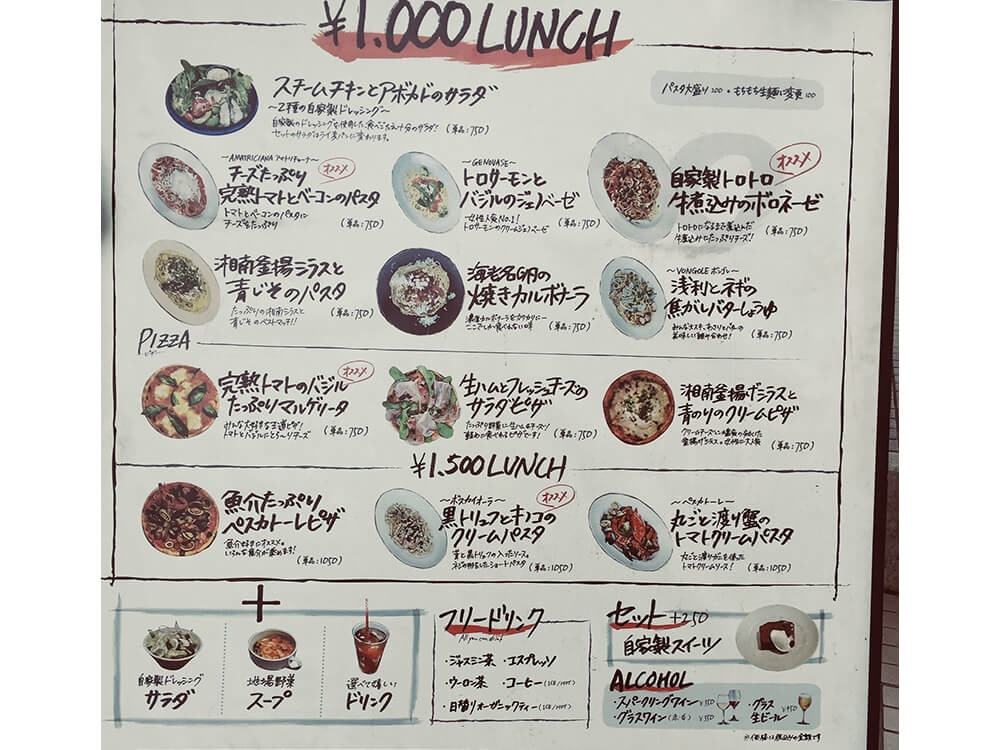 ¥1.000 LUNCH
スチームチキンとアボカドのサラダ
〜2種の自家製ドレッシング〜
自家製のドレッシングを使用した食べごたえ十分のサラダ!
セットのサラダはライ麦パンに変わります。
(単品:750)
パスタ大盛り200・もちもち生麺に変更100
〜AMATRICIANA アマトリチャーナ〜
オススメ
チーズたっぷり
完熟トマトとベーコンのパスタ
トマトとベーコンのパスタに
チーズをたっぷり
(単品:750)
〜GENOVASE〜
トロサーモンと
バジルのジェノベーゼ
女性人気NO.1!
トロサーモンのクリームジェノベーゼ
(単品:750)
オススメ
自家製トロトロ
牛煮込みのボロネーゼ
トロトロになるまで煮込んだ
牛煮込みにたっぷりチーズ!
(単品:750)
湘南釜揚シラスと
青じそのパスタ
たっぷりの湘南シラスと
青じそのベストマッチ!!
(単品:750)
海老名卵の
焼きカルボナーラ
ここでしか食べれない味
(単品:750)
〜VONGOLE ボンゴレ〜
浅利とネギの
焦がしバターしょうゆ
みんな大スキ、あさりとバターの
美味しい組み合わせ!
(単品:750)
PIZZA
ピザ
完熟トマトのバジル
オススメ
たっぷりマルゲリータ
みんな大好きな王道ピザ!
トマトとバジルにとろ〜りチーズ
(単品:750)
生ハムとフレッシュチーズの
サラダピザ
たっぷり野菜に生ハムとチーズ!
軽めに食べれるピザでーす!
(単品:750)
湘南釜揚げシラスと
青のりのクリームピザ
(単品:750)
¥1.500 LUNCH
魚介たっぷり
ペスカトーレピザ
魚介好きにオススメ。
いろんな魚介が楽しめます!
(単品:1050)
〜ボスカイオーラ〜
オススメ
黒トリュフとキノコの
クリームパスタ
茸と黒トリュフの入ったソース。
(単品:1050)
〜ペスカトーレ〜
丸ごと渡り蟹の
トマトクリームパスタ
丸ごと渡りガニを使った
トマトクリームソース!
(単品:1050)
+
自家製ドレッシング
サラダ
地場野菜
スープ
選べて嬉しい
ドリンク
フリードリンク
All you can drink
・ジャスミン茶 ・エスプレッソ
・ウーロン茶 ・コーヒー(ICE/HOT)
・日替りオーガニックティー(ICE/HOT)
セット +250
自家製スイーツ
ALCOHOL
・スパークリングワイン ¥350
・グラスワイン(赤・白) ¥350
・グラス
生ビール ¥450
※価格は税別の金額です